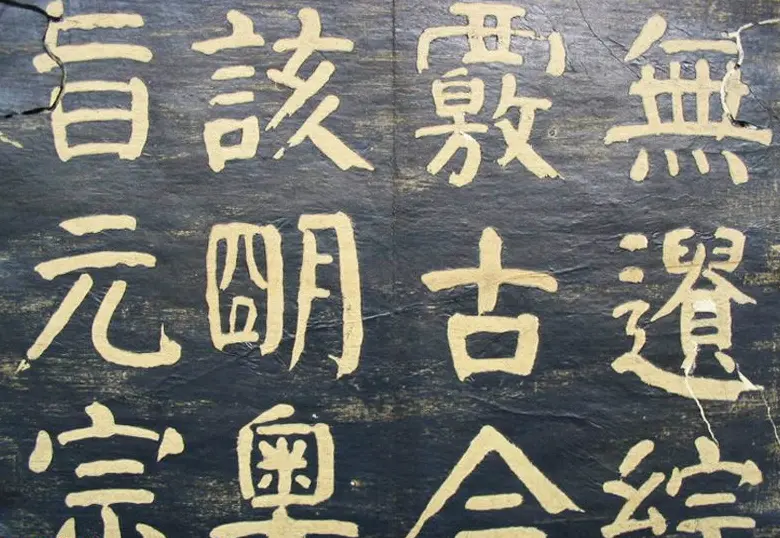 無遺綜
覈古今
該朙奧
旨元宗